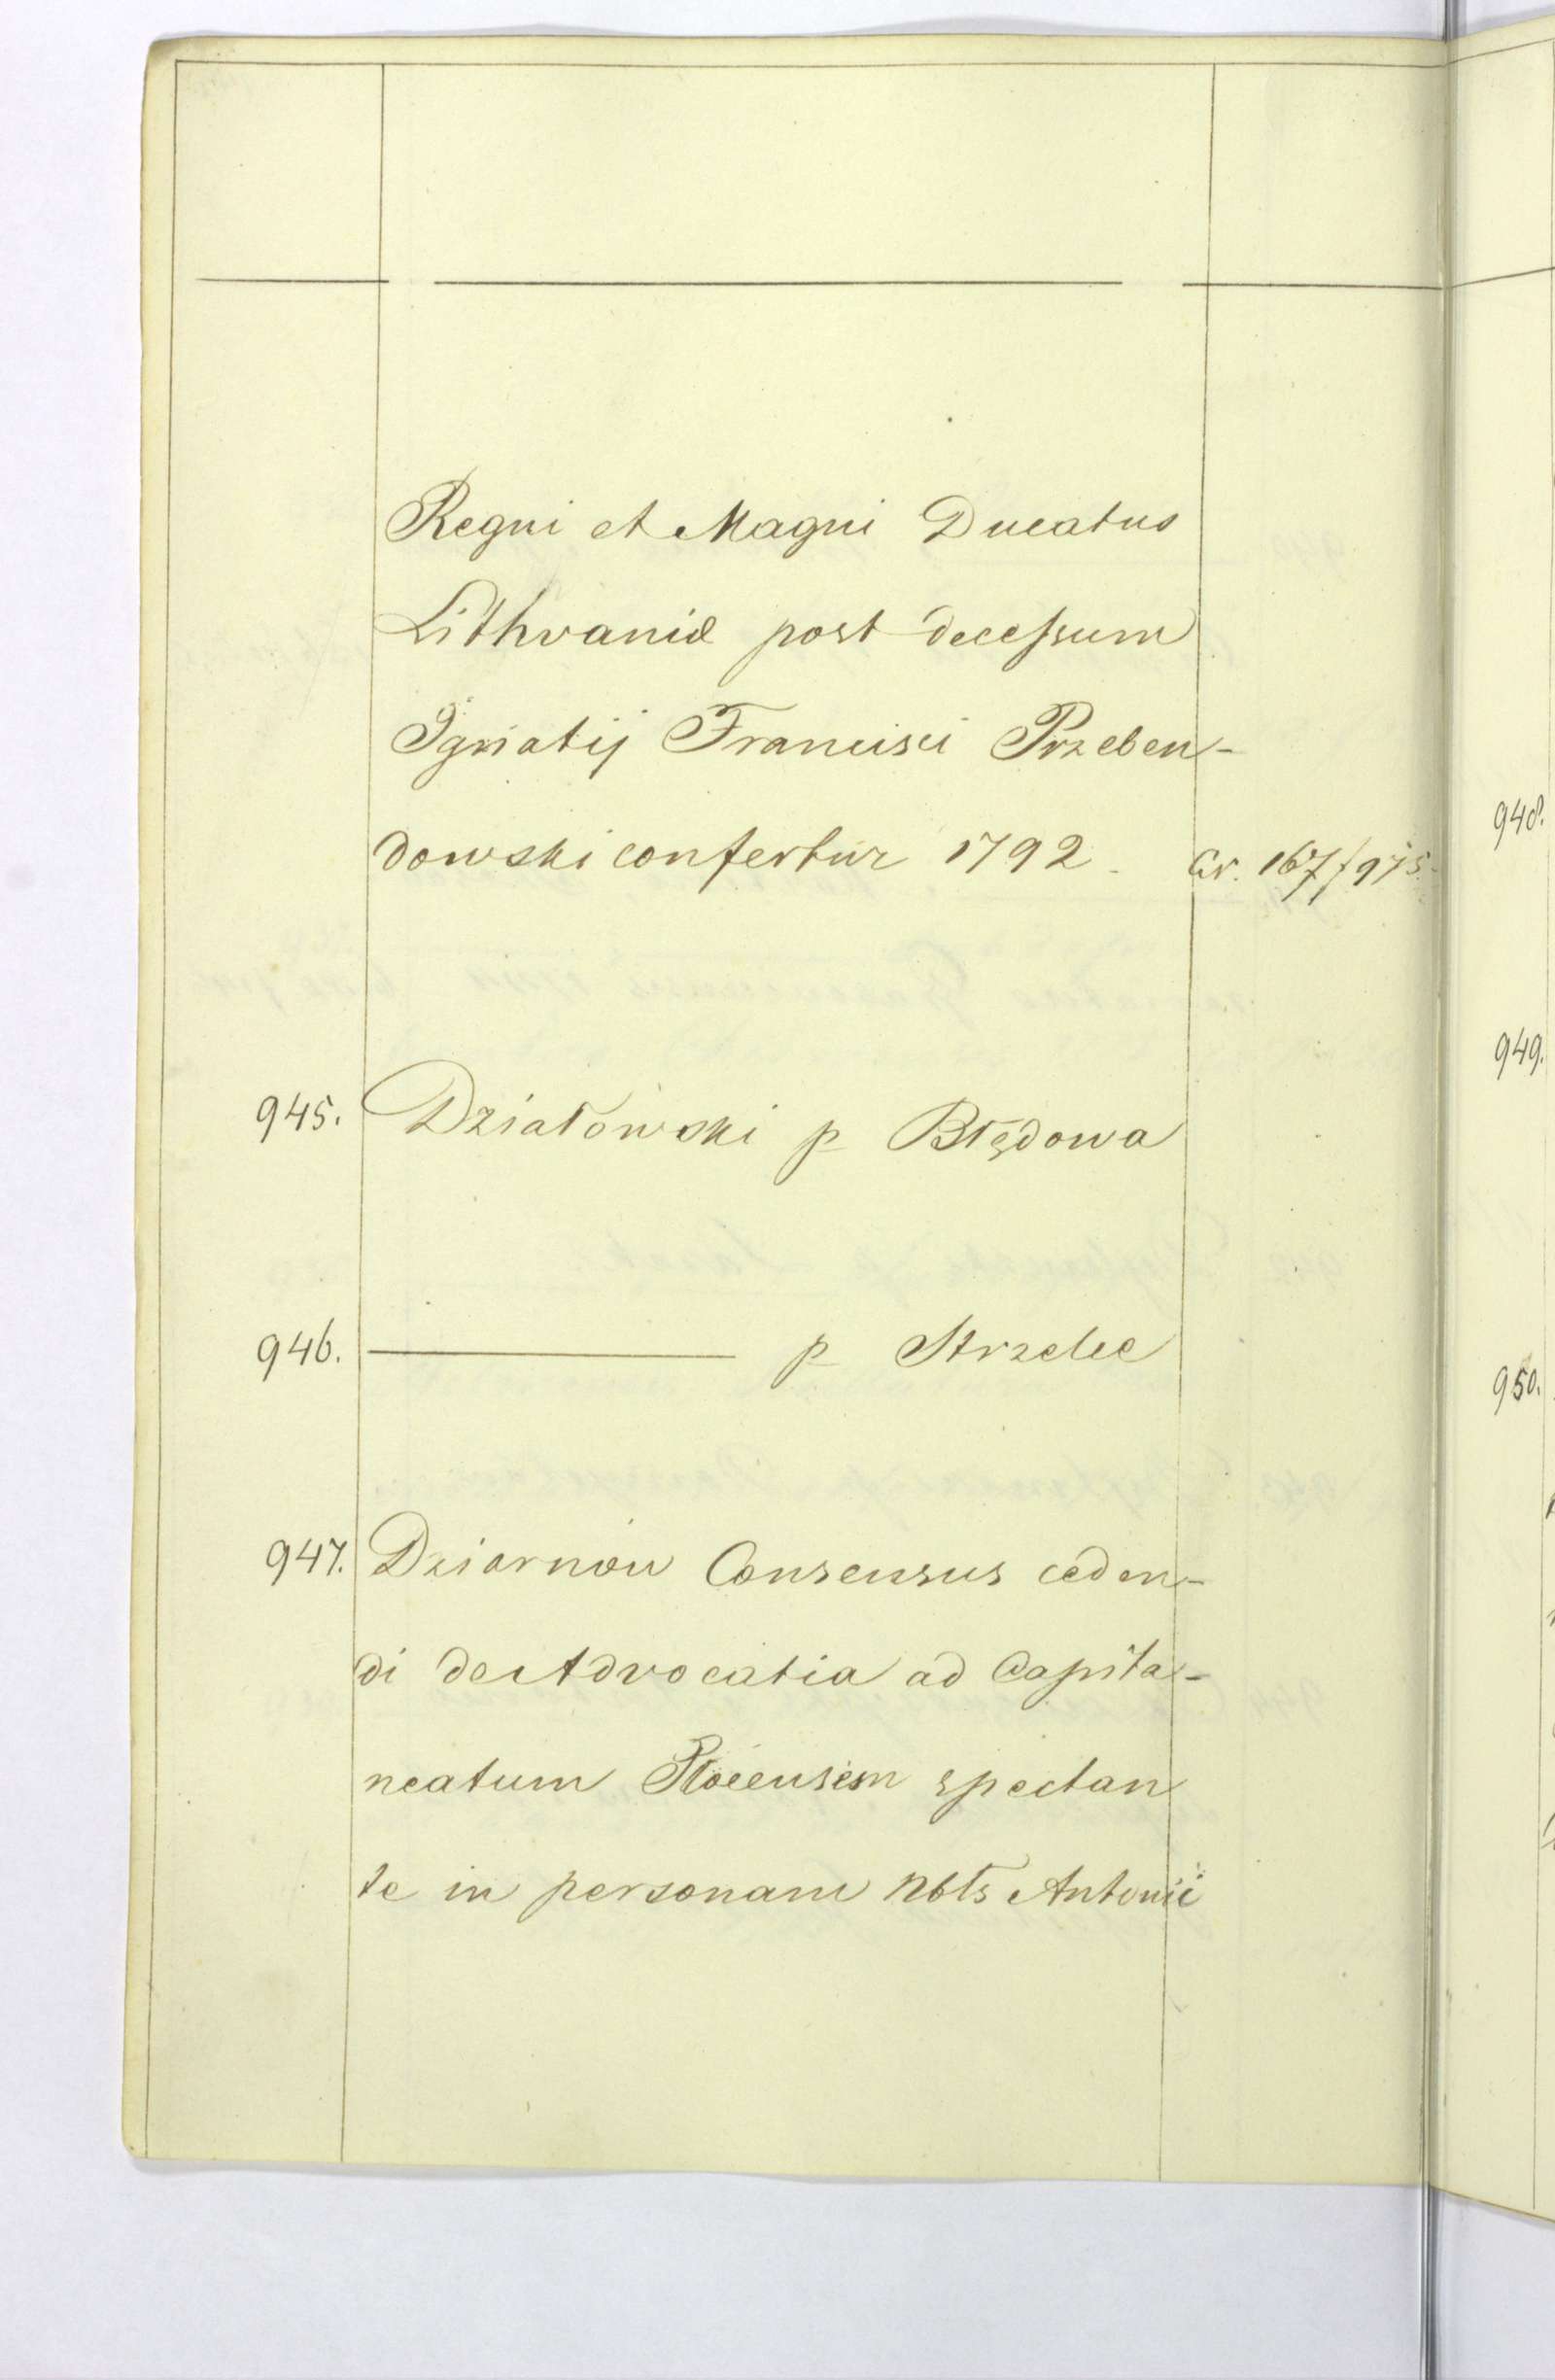 Regni et Magni Ducatus
Lithvaniæ post decessum
Ignatij Francisci Przeben-
dowski confertur 1792. Cr. 167 f 975.
945. Działowski p Błędowa
946. ——— p Strzelce
947. Dziarnow Consensus ceden-
di de Advocatia ad Capita-
neatum Płocensem spectan
te in personam Nbls Antonii
948.
949.
950.